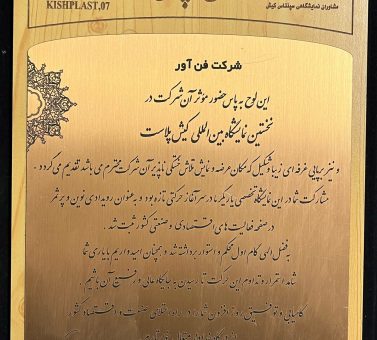 KISHPLAST,07
مشاوران نمایشگاهی میثاق کیش
شرکت فن آور
این لوح به پاس حضور مؤثر آن شرکت در
نخستین نمایشگاه بین المللی کیش پلاست
و نیز برپایی غرفه ای زیبا و شکیل که مکان عرضه و نمایش تلاش خستگی ناپذیر آن شرکت محترم می باشد تقدیم می گردد .
مشارکت شما در این نمایشگاه تخصصی باریکه ما در سرآغاز حرکتی تازه بود و به عنوان رویدادی نوین و پر ثمر
در صفحه فعالیت های اقتصادی و صنعتی کشور ثبت شد .
به فضل الهی گام اول محکم و استوار برداشته شد و همچنان امیدواریم با یاری شما
شاهد استمرار و تداوم این حرکت تا رسیدن به جایگاه عالی و رفیع آن باشیم .
کامیابی و توفیق روز افزون شما را در راه اعتلای صنعت و اقتصاد کشور